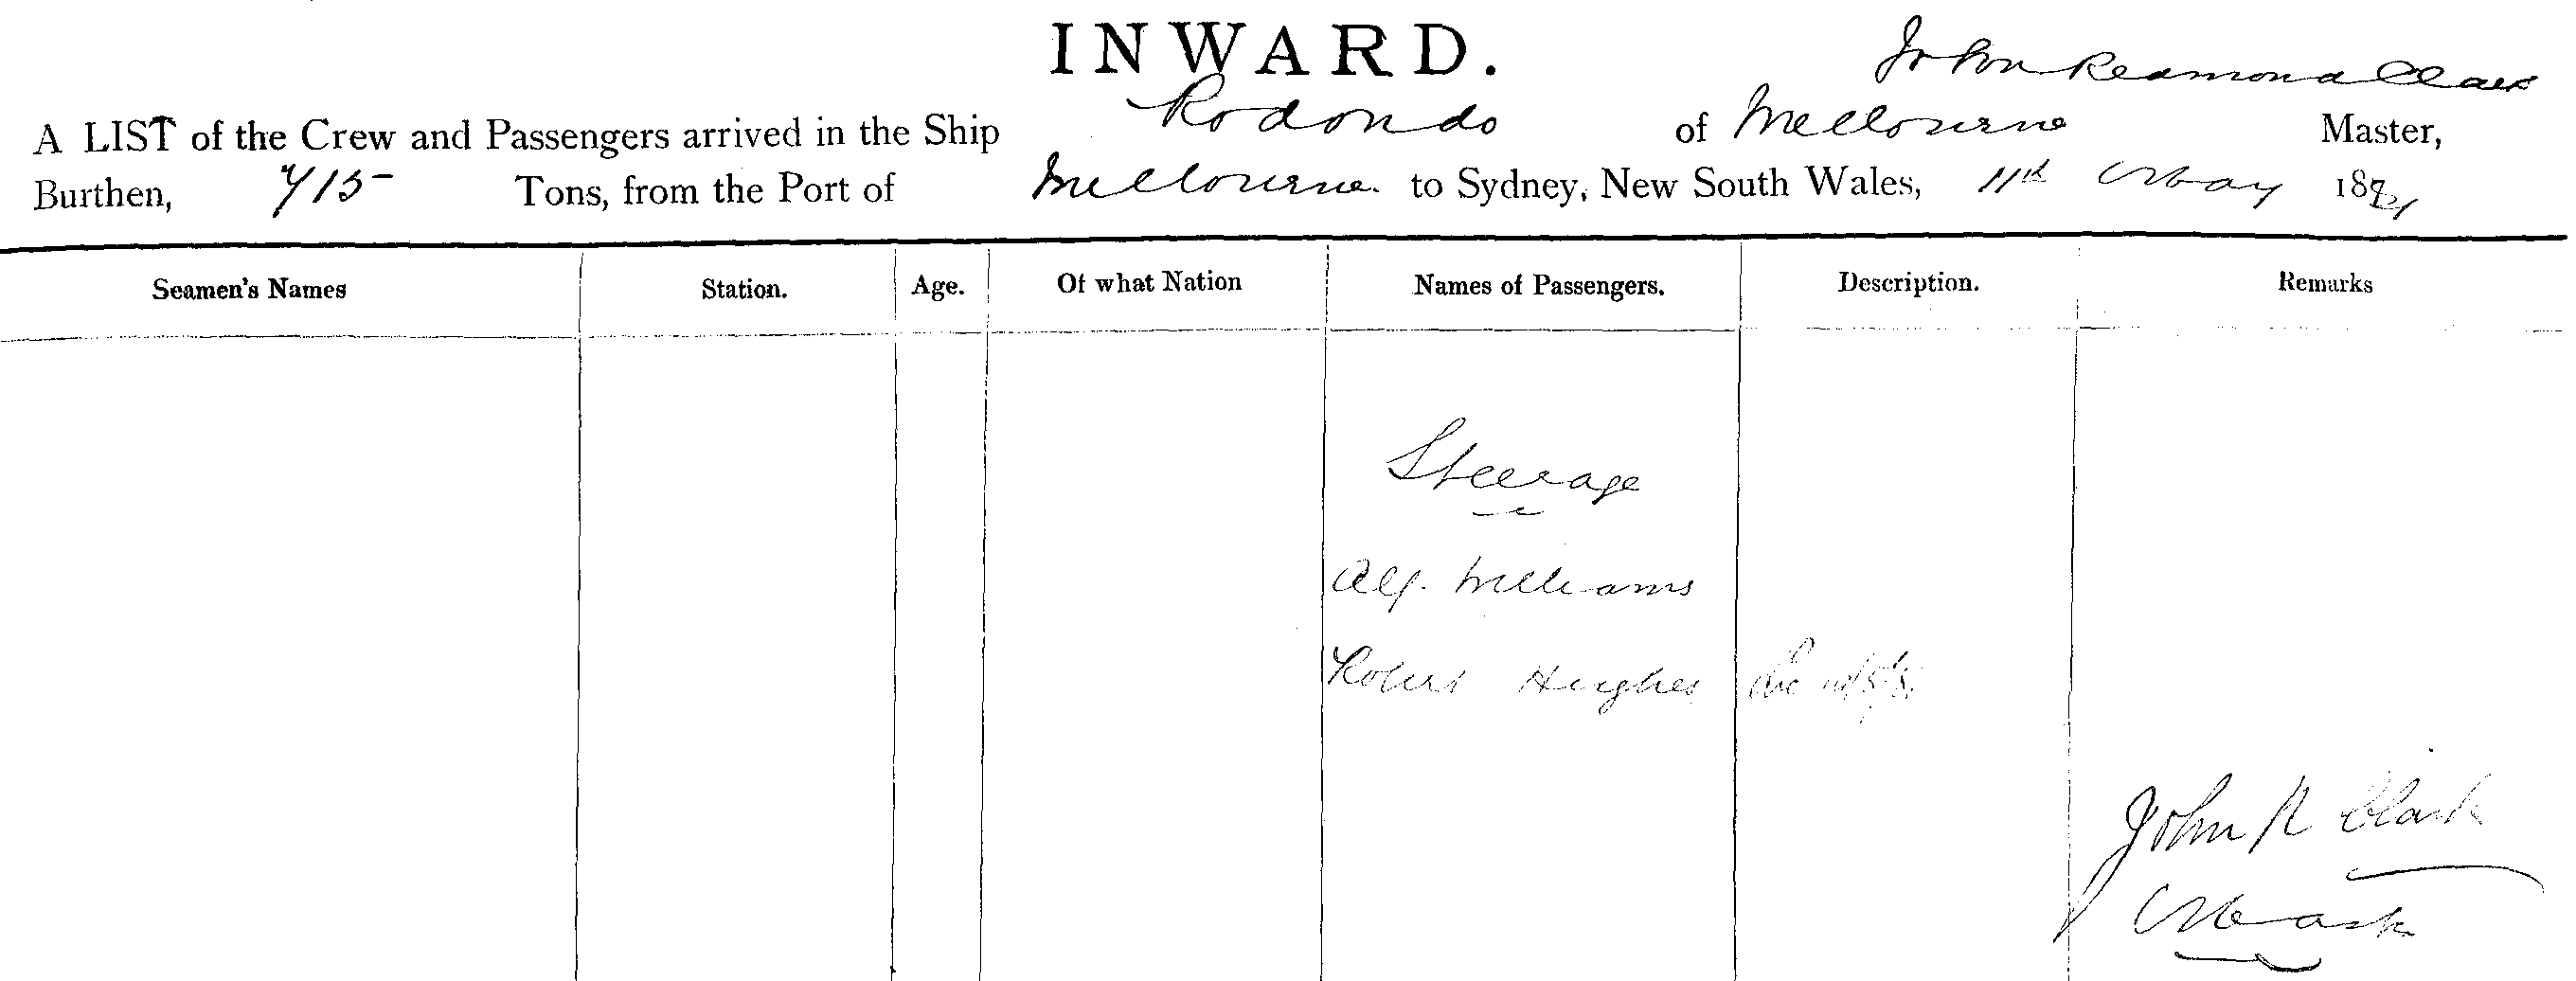 INWARD.
John Redmond Clark
A LIST of the Crew and Passengers arrived in the Ship Rodondo of Melbourne Master,
Burthen, 715 Tons, from the Port of Melbourne. to Sydney, New South Wales, 11th May 18
Seamen's Names Station. Age. Of what Nation Names of Passengers. Description. Remarks
Steerage
Alf. Williams
Robert Hughes
John R Clark
Mast